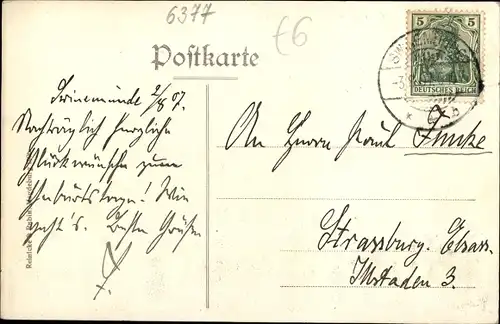 6377
£6
Postkarte
5 5
DEUTSCHES REICH
Swinemünde 2/8 07.
Nachträglich herzliche
Glückwünsche zum
Geburtstage! Wie
geht's. Besten Gruß
F.
An Herrn Paul Funke
Strassburg. Elsass.
Illstaden 3.
Reinicke & Rubin, Magdeburg